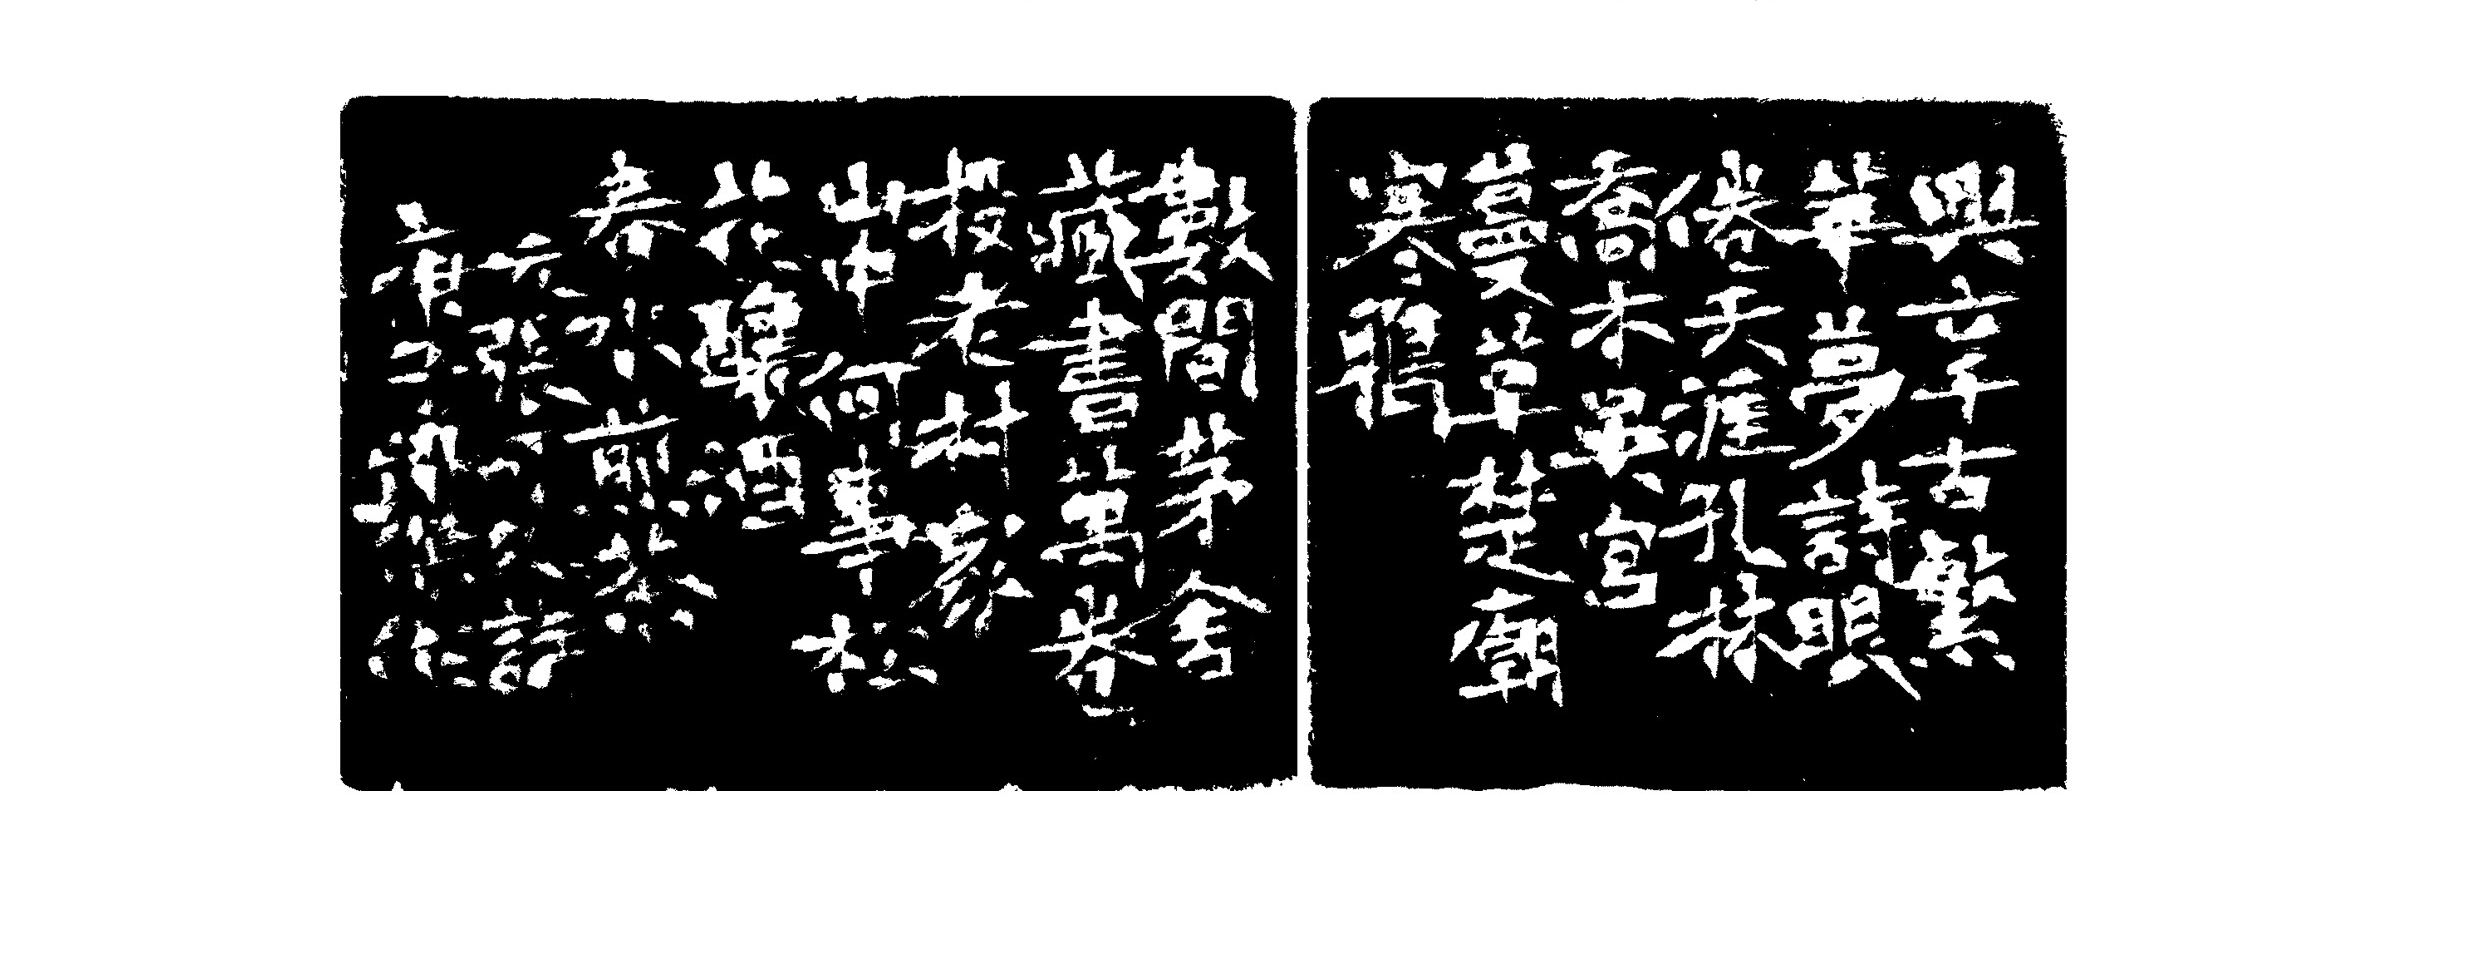 興亡千古繁
華夢詩眼
倦天涯孔林
喬木吳宮
蔓草楚廟
寒鴉
數間茅舍
藏書萬卷
投老村家
山中何事松
花釀酒
春水煎茶
元張可久詩
作